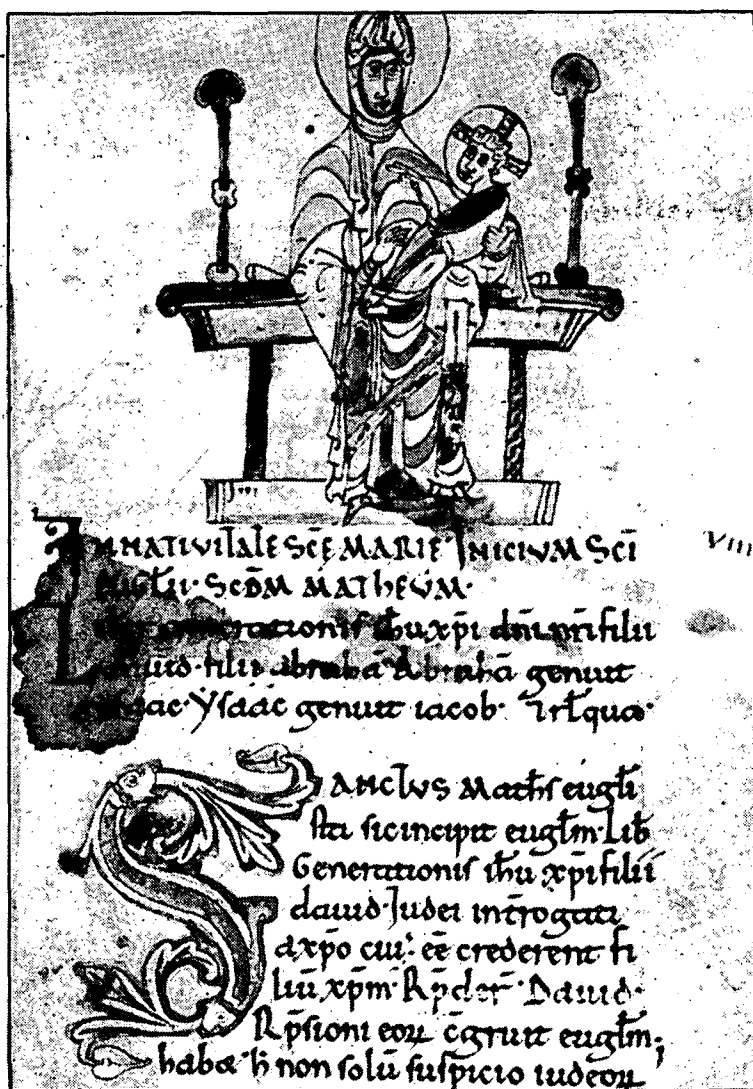 IN NATIVITATE SCĒ MARIE INICIVM SCĪ
EUGLĪI SCDM MATHEVM
generationis ihu xp̄i dn̄i nr̄i filii
dauid filii abrahā Abrahā genuit
ysaac Ysaac genuit iacob ⁊ rlqua
viii
SANCTVS Math̄s eugl̄i
sta sic incipit eugl̄m Lib̄
Generationis ih̄u xp̄i filii
dauid Iudei int̄rogati
a xp̄o cui' eē crederent fi
liū xp̄m R̄p̄der̄ Dauid
R̄p̄sioni eoꝝ c̄gruit eugl̄m;
habet h̄ non solū suspicio iudeoꝝ